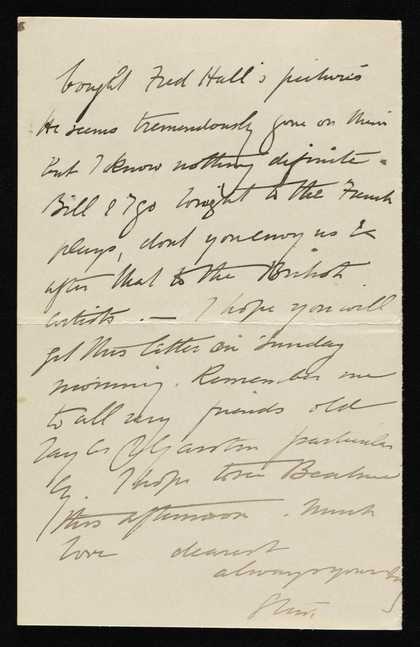 bought Fred Hall's pictures
He seems tremendously gone on them
but I know nothing definite -
Bill & I go tonight to the French
plays, dont you envy us &
after that to the British
artists. — I hope you will
get this letter on Sunday
morning. Remember me
to all my friends old
particular
ly. I hope to see
this afternoon. Much
love dearest
always your